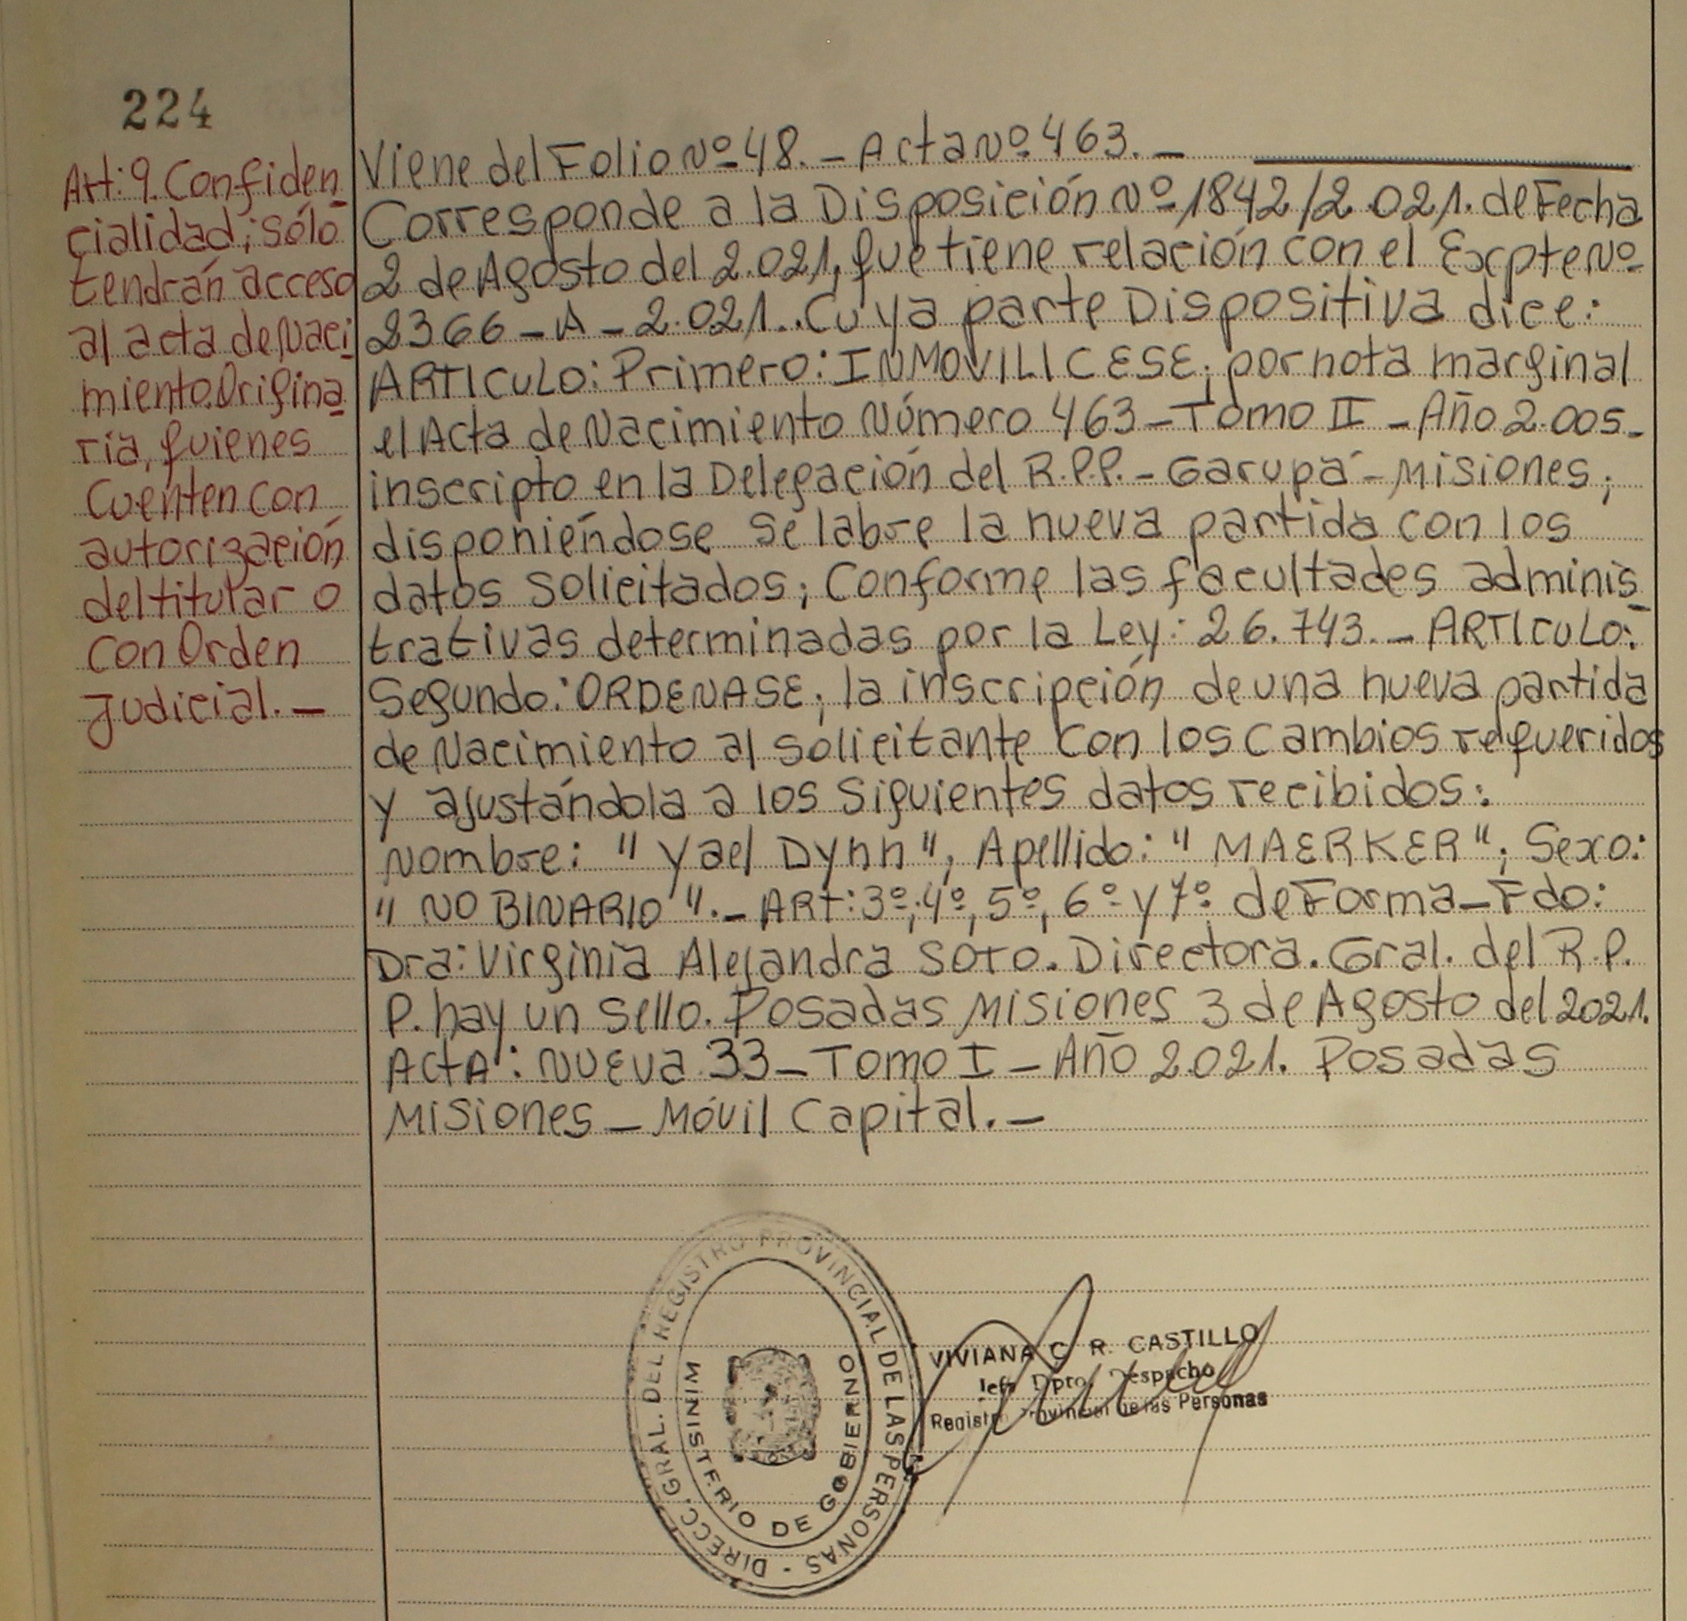 224
Art: 9. Confiden
cialidad; sólo
tendrán acceso
al acta de Naci
miento Origina
ria, quienes
Cuenten con
autorización
del titular o
con Orden
Judicial. —
Viene del Folio Nº 48. — Acta Nº 463. —
Corresponde a la Disposición Nº 1842/2.021. de Fecha
2 de Agosto del 2.021, que tiene relación con el Excpte Nº
2366 - A - 2.021.. Cuya parte Dispositiva dice:
ARTICULO: Primero: INMOVILICESE; por nota marginal
el Acta de Nacimiento Número 463 - Tomo II - Año 2.005 -
inscripto en la Delegación del R.P.P. - Garupá - Misiones;
disponiéndose se labre la nueva partida con los
datos solicitados; Conforme las facultades adminis
trativas determinadas por la Ley: 26.743. - ARTICULO:
Segundo: ORDENASE; la inscripción de una nueva partida
de Nacimiento al solicitante con los cambios requeridos
y ajustándola a los siguientes datos recibidos:
Nombre: "Yael Dynn", Apellido: "MAERKER"; Sexo:
"NO BINARIO". - ART: 3º, 4º, 5º, 6º y 7º de Forma - Fdo:
Dra: Virginia Alejandra SOTO. Directora. Gral. del R.P.
P. hay un sello. Posadas Misiones 3 de Agosto del 2021.
ACTA: Nueva 33 - Tomo I - Año 2.021. Posadas
Misiones - Móvil Capital. —
DIRECC. GRAL. DEL REGISTRO PROVINCIAL DE LAS PERSONAS -
MINISTERIO DE GOBIERNO
VIVIANA C. R. CASTILLO
Jefe Dpto. Despacho
Registro Provincial de las Personas